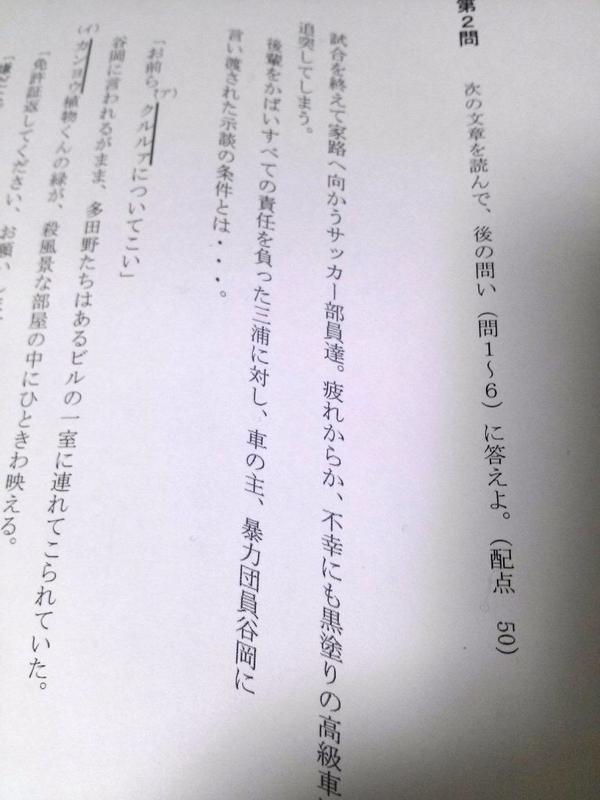 第2問
次の文章を読んで、後の問い（問1～6）に答えよ。（配点 50）
試合を終えて家路へ向かうサッカー部員達。疲れからか、不幸にも黒塗りの高級車に
追突してしまう。
後輩をかばいすべての責任を負った三浦に対し、車の主、暴力団員谷岡に
言い渡された示談の条件とは・・・。
「お前ら、(ア)クルルァについてこい」
谷岡に言われるがまま、多田野たちはあるビルの一室に連れてこられていた。
(イ)カンヨウ植物くんの緑が、殺風景な部屋の中にひときわ映える。
「免許証返してください、お願いします